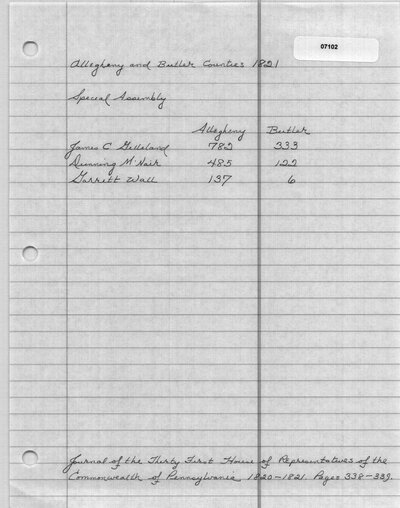 07102
Allegheny and Butler Counties 1821
Special Assembly
Allegheny Butler
James C Gilleland 782 333
Dunning McNair 485 122
Garrett Wall 137 6
Journal of the Thirty First House of Representatives of the
Commonwealth of Pennsylvania 1820-1821. Pages 338-339.